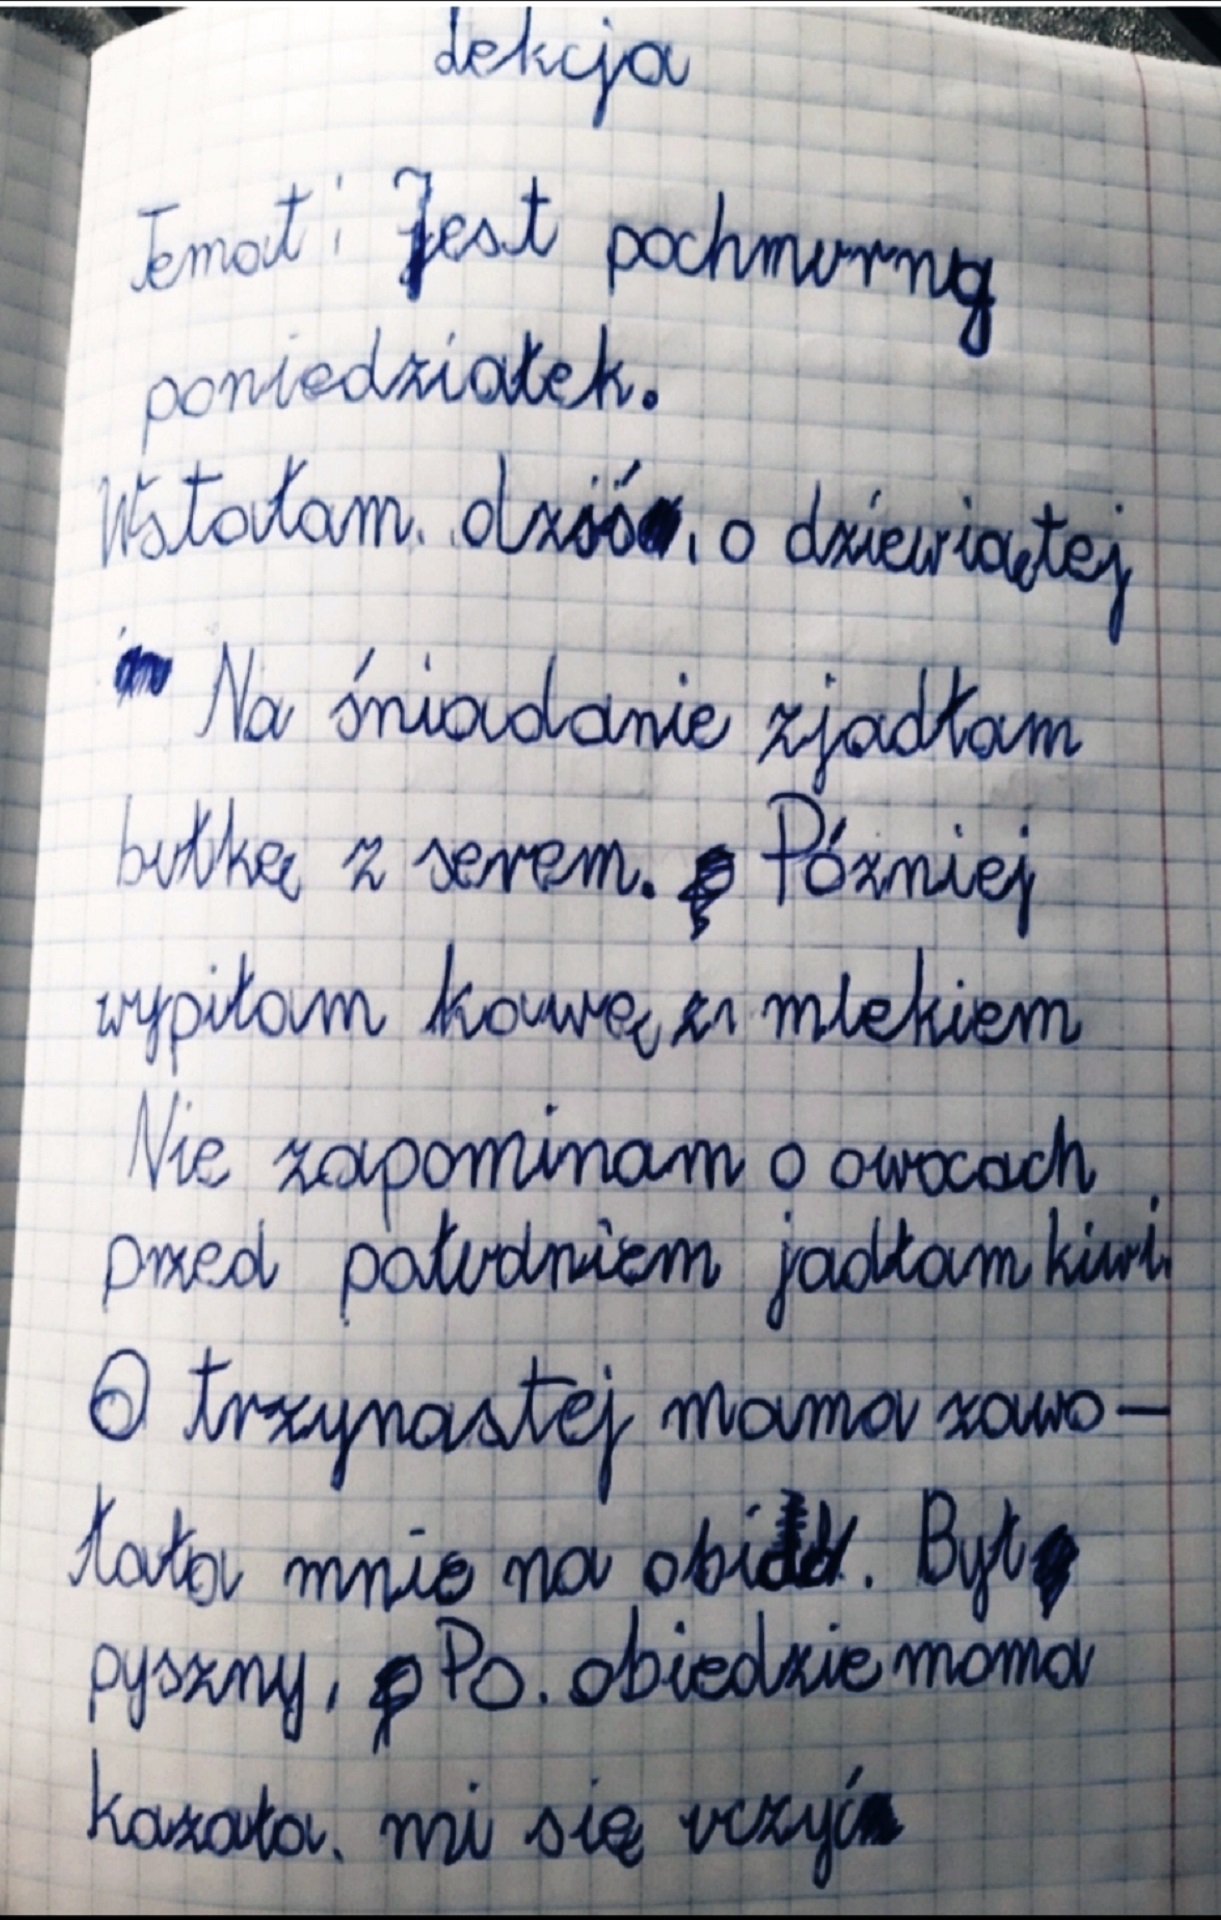 Lekcja
Temat: Jest pochmurny
poniedziałek.
Wstałam. dziś, o dziewiątej
Na śniadanie zjadłam
bułkę z serem. Później
wypiłam kawę z mlekiem
Nie zapominam o owocach
przed południem jadłam kiwi.
O trzynastej mama zawo-
łała mnie na obiad. Był
pyszny, Po. obiedzie mama
kazała. mi się uczyć